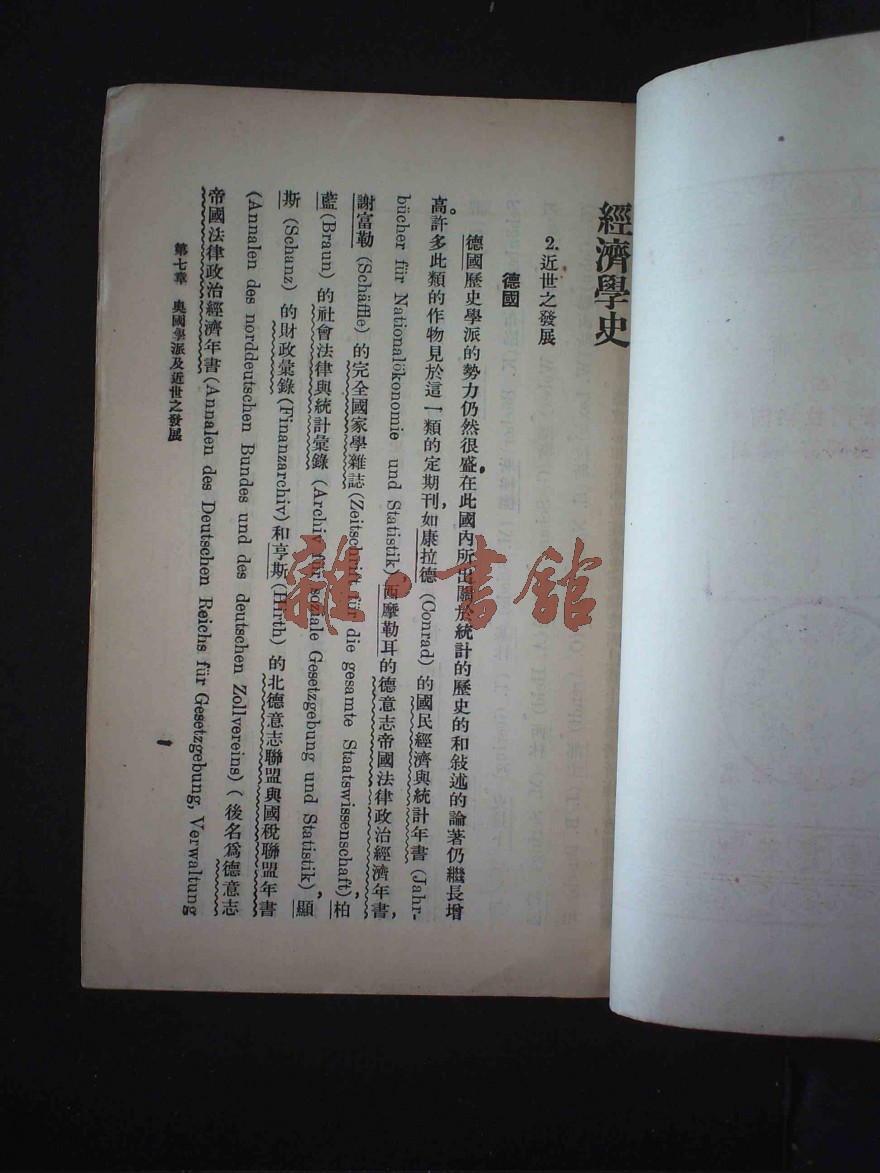 經濟學史
2.近世之發展
德國
德國歷史學派的勢力仍然很盛。在此國內所出關於統計的歷史的和敍述的論著仍繼長增
高。許多此類的作物見於這一類的定期刊,如康拉德 (Conrad) 的國民經濟與統計年書 (Jahr-
bücher für Nationalökonomie und Statistik) 西摩勒耳的德意志帝國法律政治經濟年書,
謝富勒 (Schäffle) 的完全國家學雜誌 (Zeitschrift für die gesamte Staatswissenschaft), 柏
藍 (Braun) 的社會法律與統計彙錄 (Archiv für soziale Gesetzgebung und Statistik), 顯
斯 (Schanz) 的財政彙錄 (Finanzarchiv) 和亨斯 (Hirth) 的北德意志聯盟與國稅聯盟年書
(Annalen des norddeutschen Bundes und des deutschen Zollvereins) (後名爲德意志
帝國法律政治經濟年書 (Annalen des Deutschen Reichs für Gesetzgebung, Verwaltung
第七章 奧國學派及近世之發展
一
雜·書館